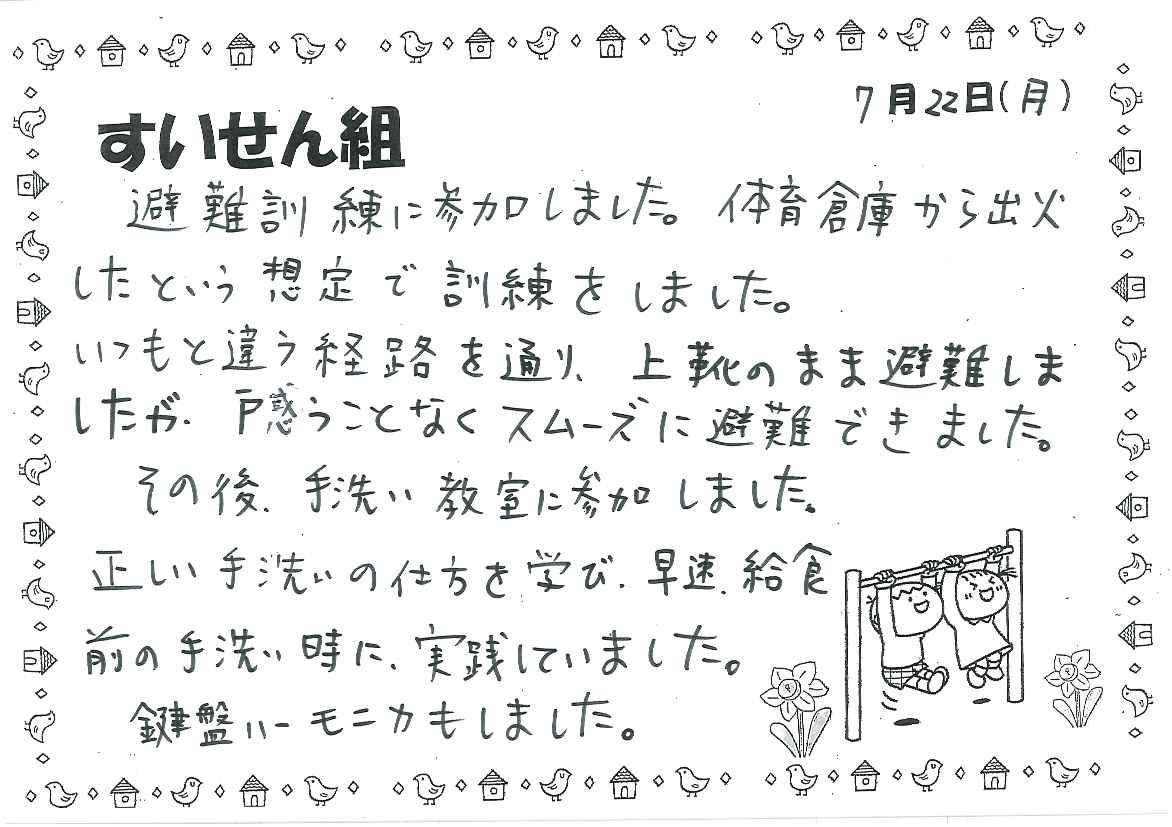 7月22日(月)
すいせん組
避難訓練に参加しました。体育倉庫から出火
したという想定で訓練をしました。
いつもと違う経路を通り、上靴のまま避難しま
したが、戸惑うことなくスムーズに避難できました。
その後、手洗い教室に参加しました。
正しい手洗いの仕方を学び、早速、給食
前の手洗い時に、実践していました。
鍵盤ハーモニカもしました。